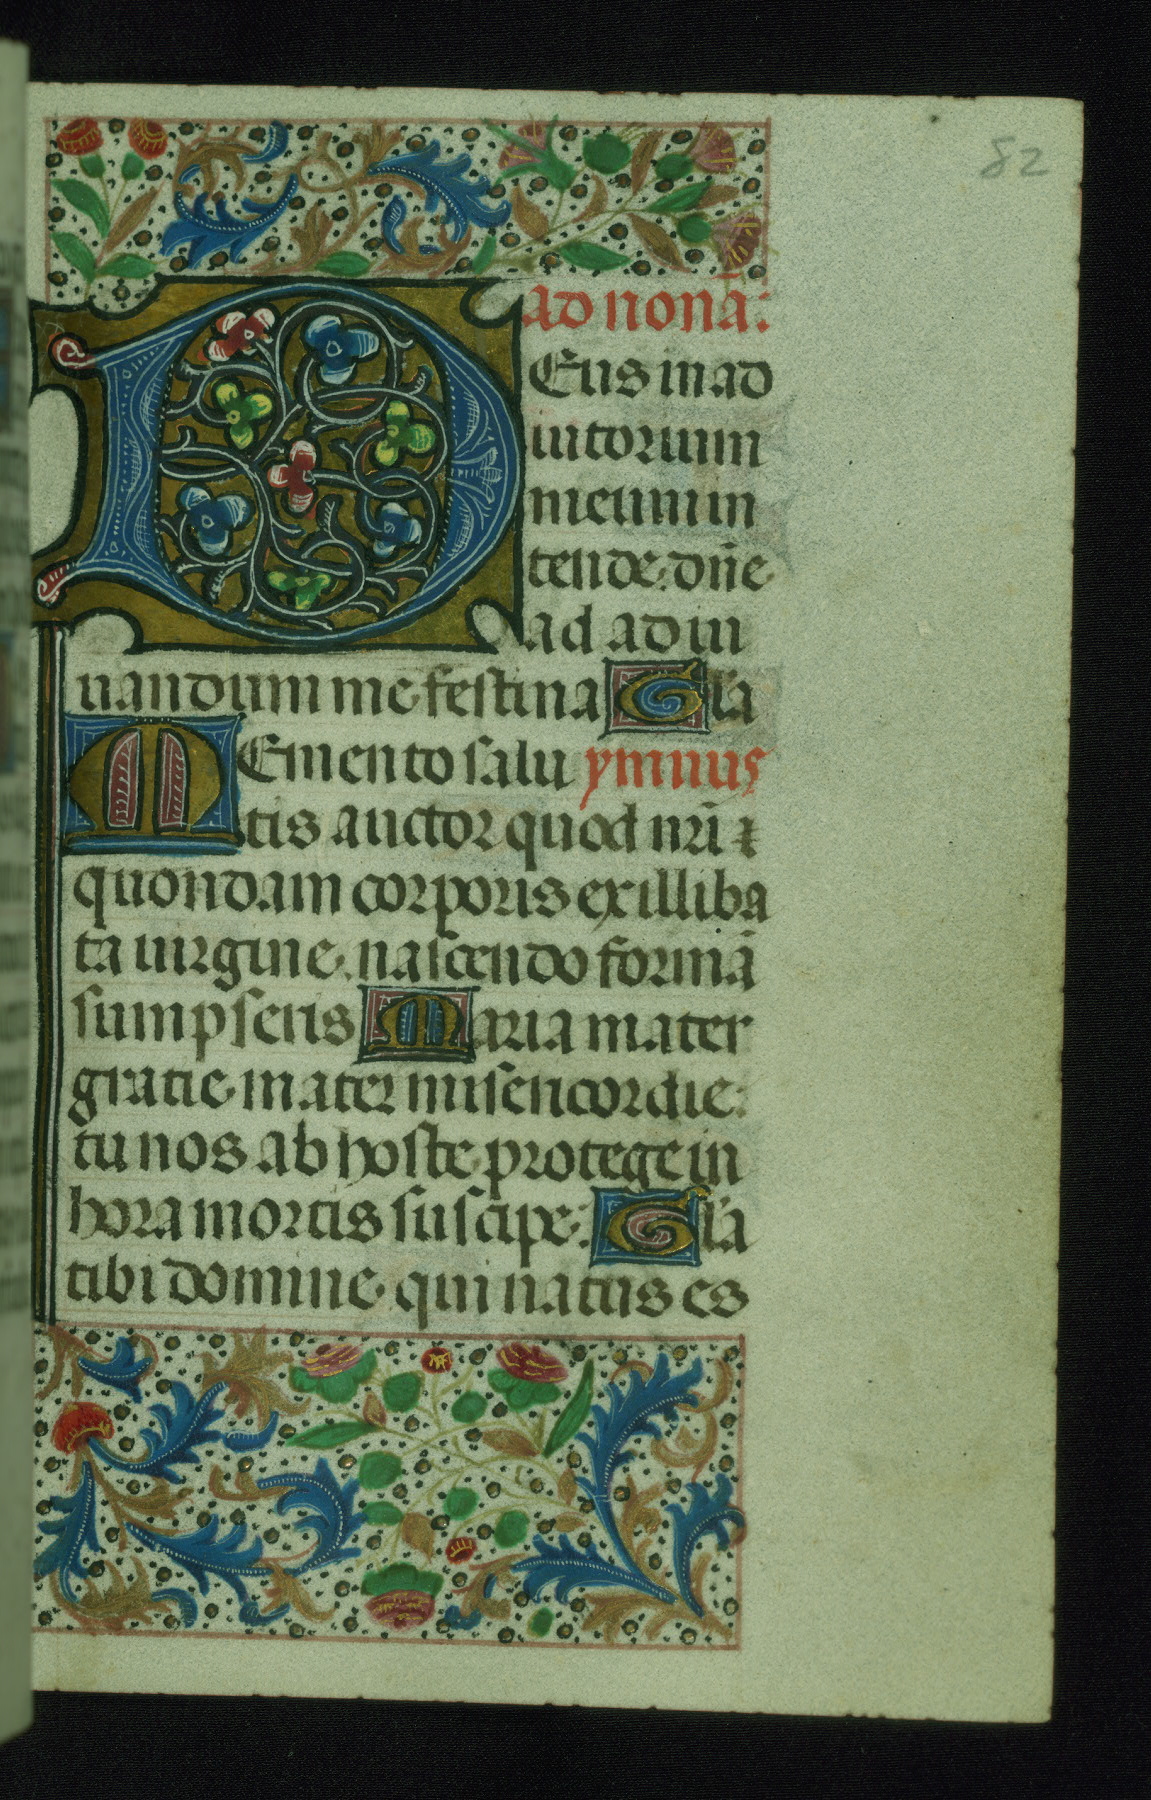 82
ad nonā:
DEus in ad
iutorium
meum in
tende: dn̄e
ad ad iu
uandum me festina Gl'a
MEmento salu ymnus
tis auctor quod nr̄i ꝛ
quondam corporis ex illiba
ta uirgine nascendo formā
sumpseris Maria mater
gratie mater misericordie:
tu nos ab hoste protege in
hora mortis suscipe: Gl'a
tibi domine qui natus es